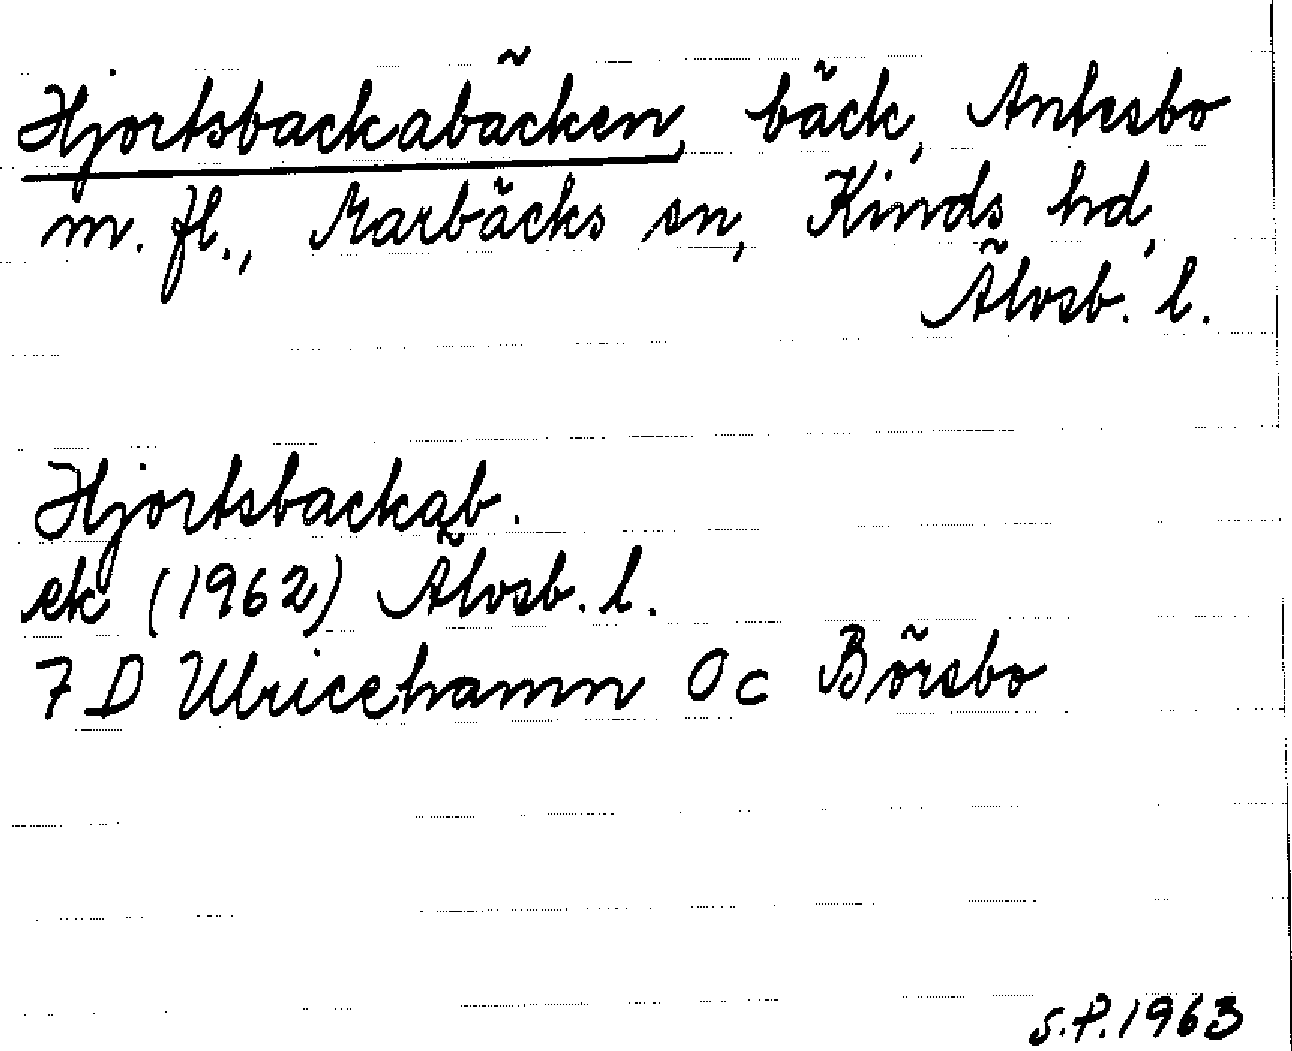 Hjortsbackabäcken, bäck, Antesbo
m. fl., Marbäcks sn, Kinds hd,
Älvsb. l.
Hjortsbackab.
ek (1962) Älvsb. l.
7 D Ulricehamn 0 c Börsbo
S.P. 1963